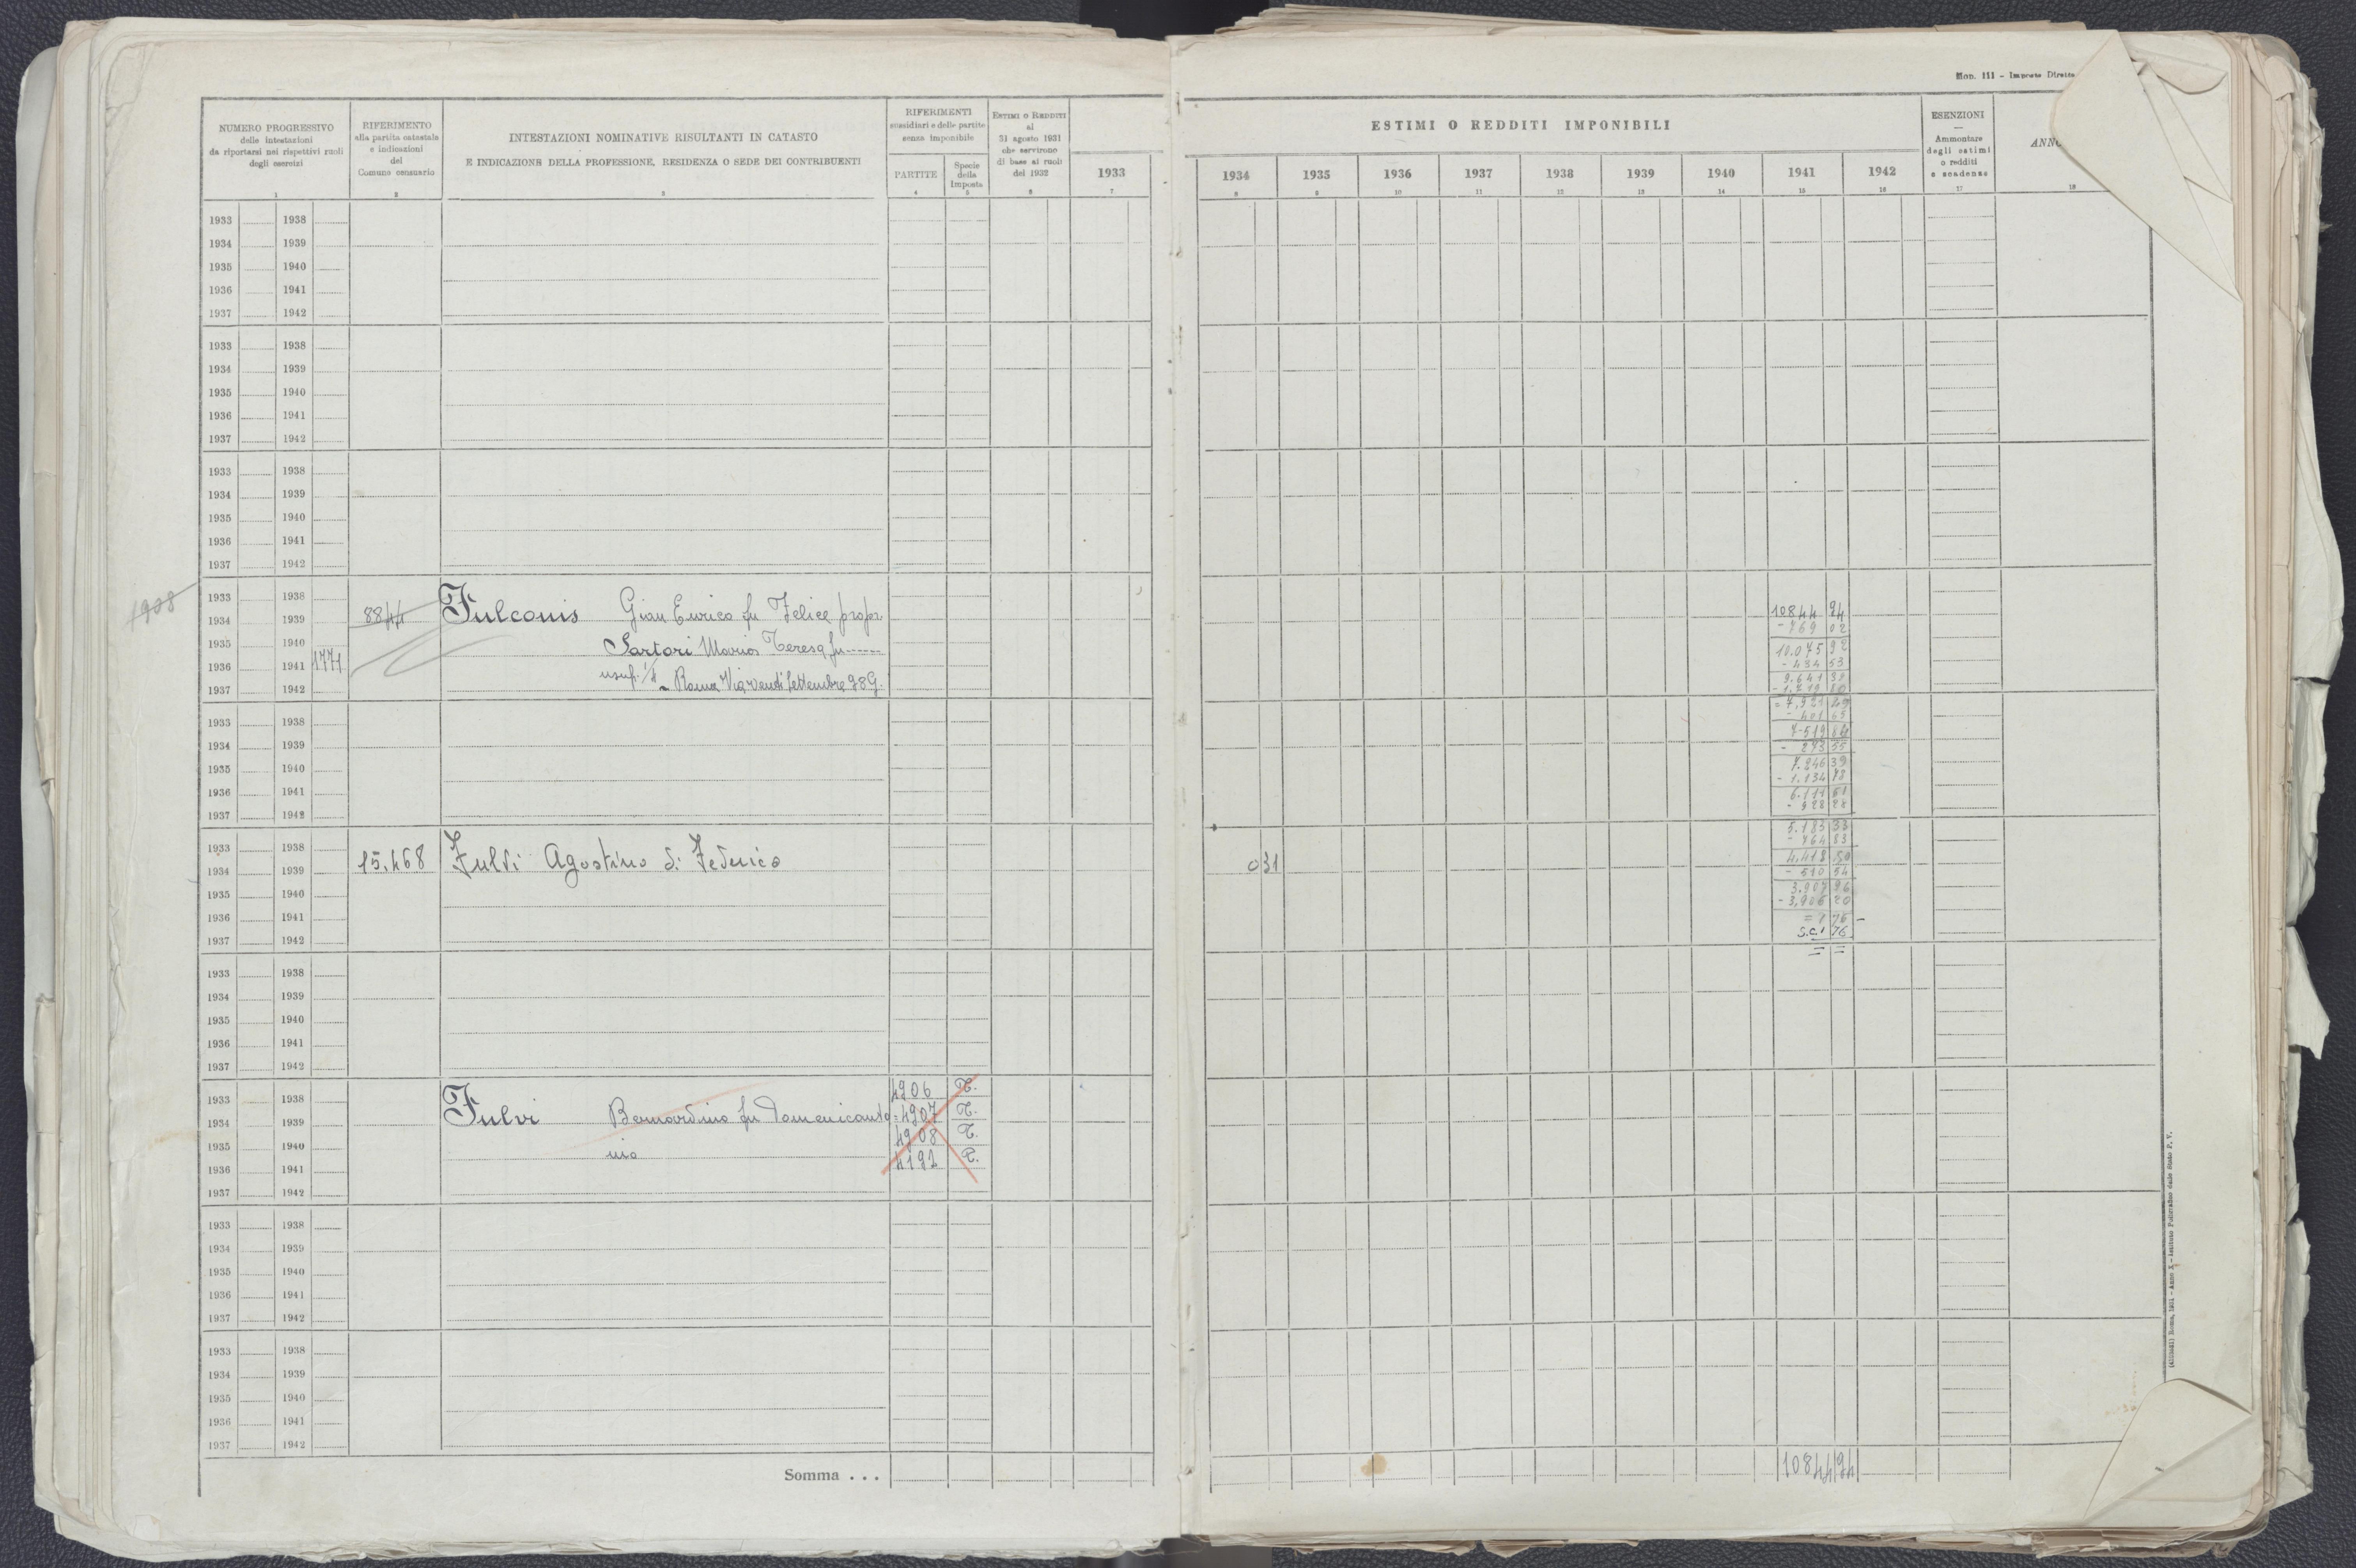 Mod. 111 - Imposte Dirette
NUMERO PROGRESSIVO
delle intestazioni
da riportarsi nei rispettivi ruoli
degli esercizi
1
RIFERIMENTO
alla partita catastale
e indicazioni
del
Comune censuario
2
INTESTAZIONI NOMINATIVE RISULTANTI IN CATASTO
E INDICAZIONE DELLA PROFESSIONE, RESIDENZA O SEDE DEI CONTRIBUENTI
3
RIFERIMENTI
sussidiari e delle partite
senza imponibile
PARTITE
4
Specie
della
Imposta
5
ESTIMI O REDDITI
al
31 agosto 1931
che servirono
di base ai ruoli
del 1932
6
1933
7
ESTIMI O REDDITI IMPONIBILI
1934 1935 1936 1937 1938 1939 1940 1941 1942
8 9 10 11 12 13 14 15 16
ESENZIONI
—
Ammontare
degli estimi
o redditi
e scadenze
17
18
1933 1938
1934 1939
1935 1940
1936 1941
1937 1942
1933 1938
1934 1939
1935 1940
1936 1941
1937 1942
1933 1938
1934 1939
1935 1940
1936 1941
1937 1942
1908
1933 1938
1934 1939 8844 Fulconis Gian Enrico fu Felice propr 10844 94
- 769 02
1935 1940 Sartori Maria Teresa fu ------ 10.075 92
1936 1941 1771 - 434 53
1937 1942 usuf. 1/3 - Roma Via Venti Settembre 98 G. 9.641 38
- 1.719 80
1933 1938 = 7.921 49
- 401 65
1934 1939 7.519 84
- 273 55
1935 1940 7.246 39
1936 1941 - 1.134 78
1937 1942 6.111 51
- 928 28
1933 1938 5.183 33
- 764 83
1934 1939 15.468 Fulvi Agostino di Federico 0 31 4.418 50
- 510 54
1935 1940 3.907 96
1936 1941 - 3,906 20
= 1 76 -
1937 1942 s.c. 1 76
= =
1933 1938
1934 1939
1935 1940
1936 1941
1937 1942
1933 1938 4906 T.
1934 1939 Fulvi Bernardino fu Domenicanto= 4907 T.
1935 1940 nio 4908 T.
1936 1941 4192 T.
1937 1942
1933 1938
1934 1939
1935 1940
1936 1941
1937 1942
1933 1938
1934 1939
1935 1940
1936 1941
1937 1942
Somma . . . 10844 94
Roma, 1931 - Anno X - Istituto Poligrafico dello Stato P. V.